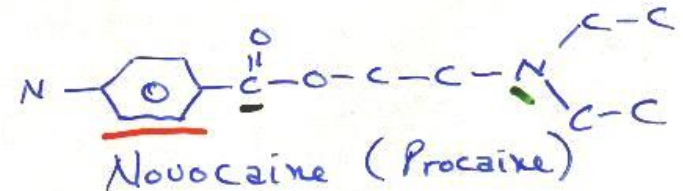 C-C
O
N C-O-C-C-N
C-C
Novocaine (Procaine)